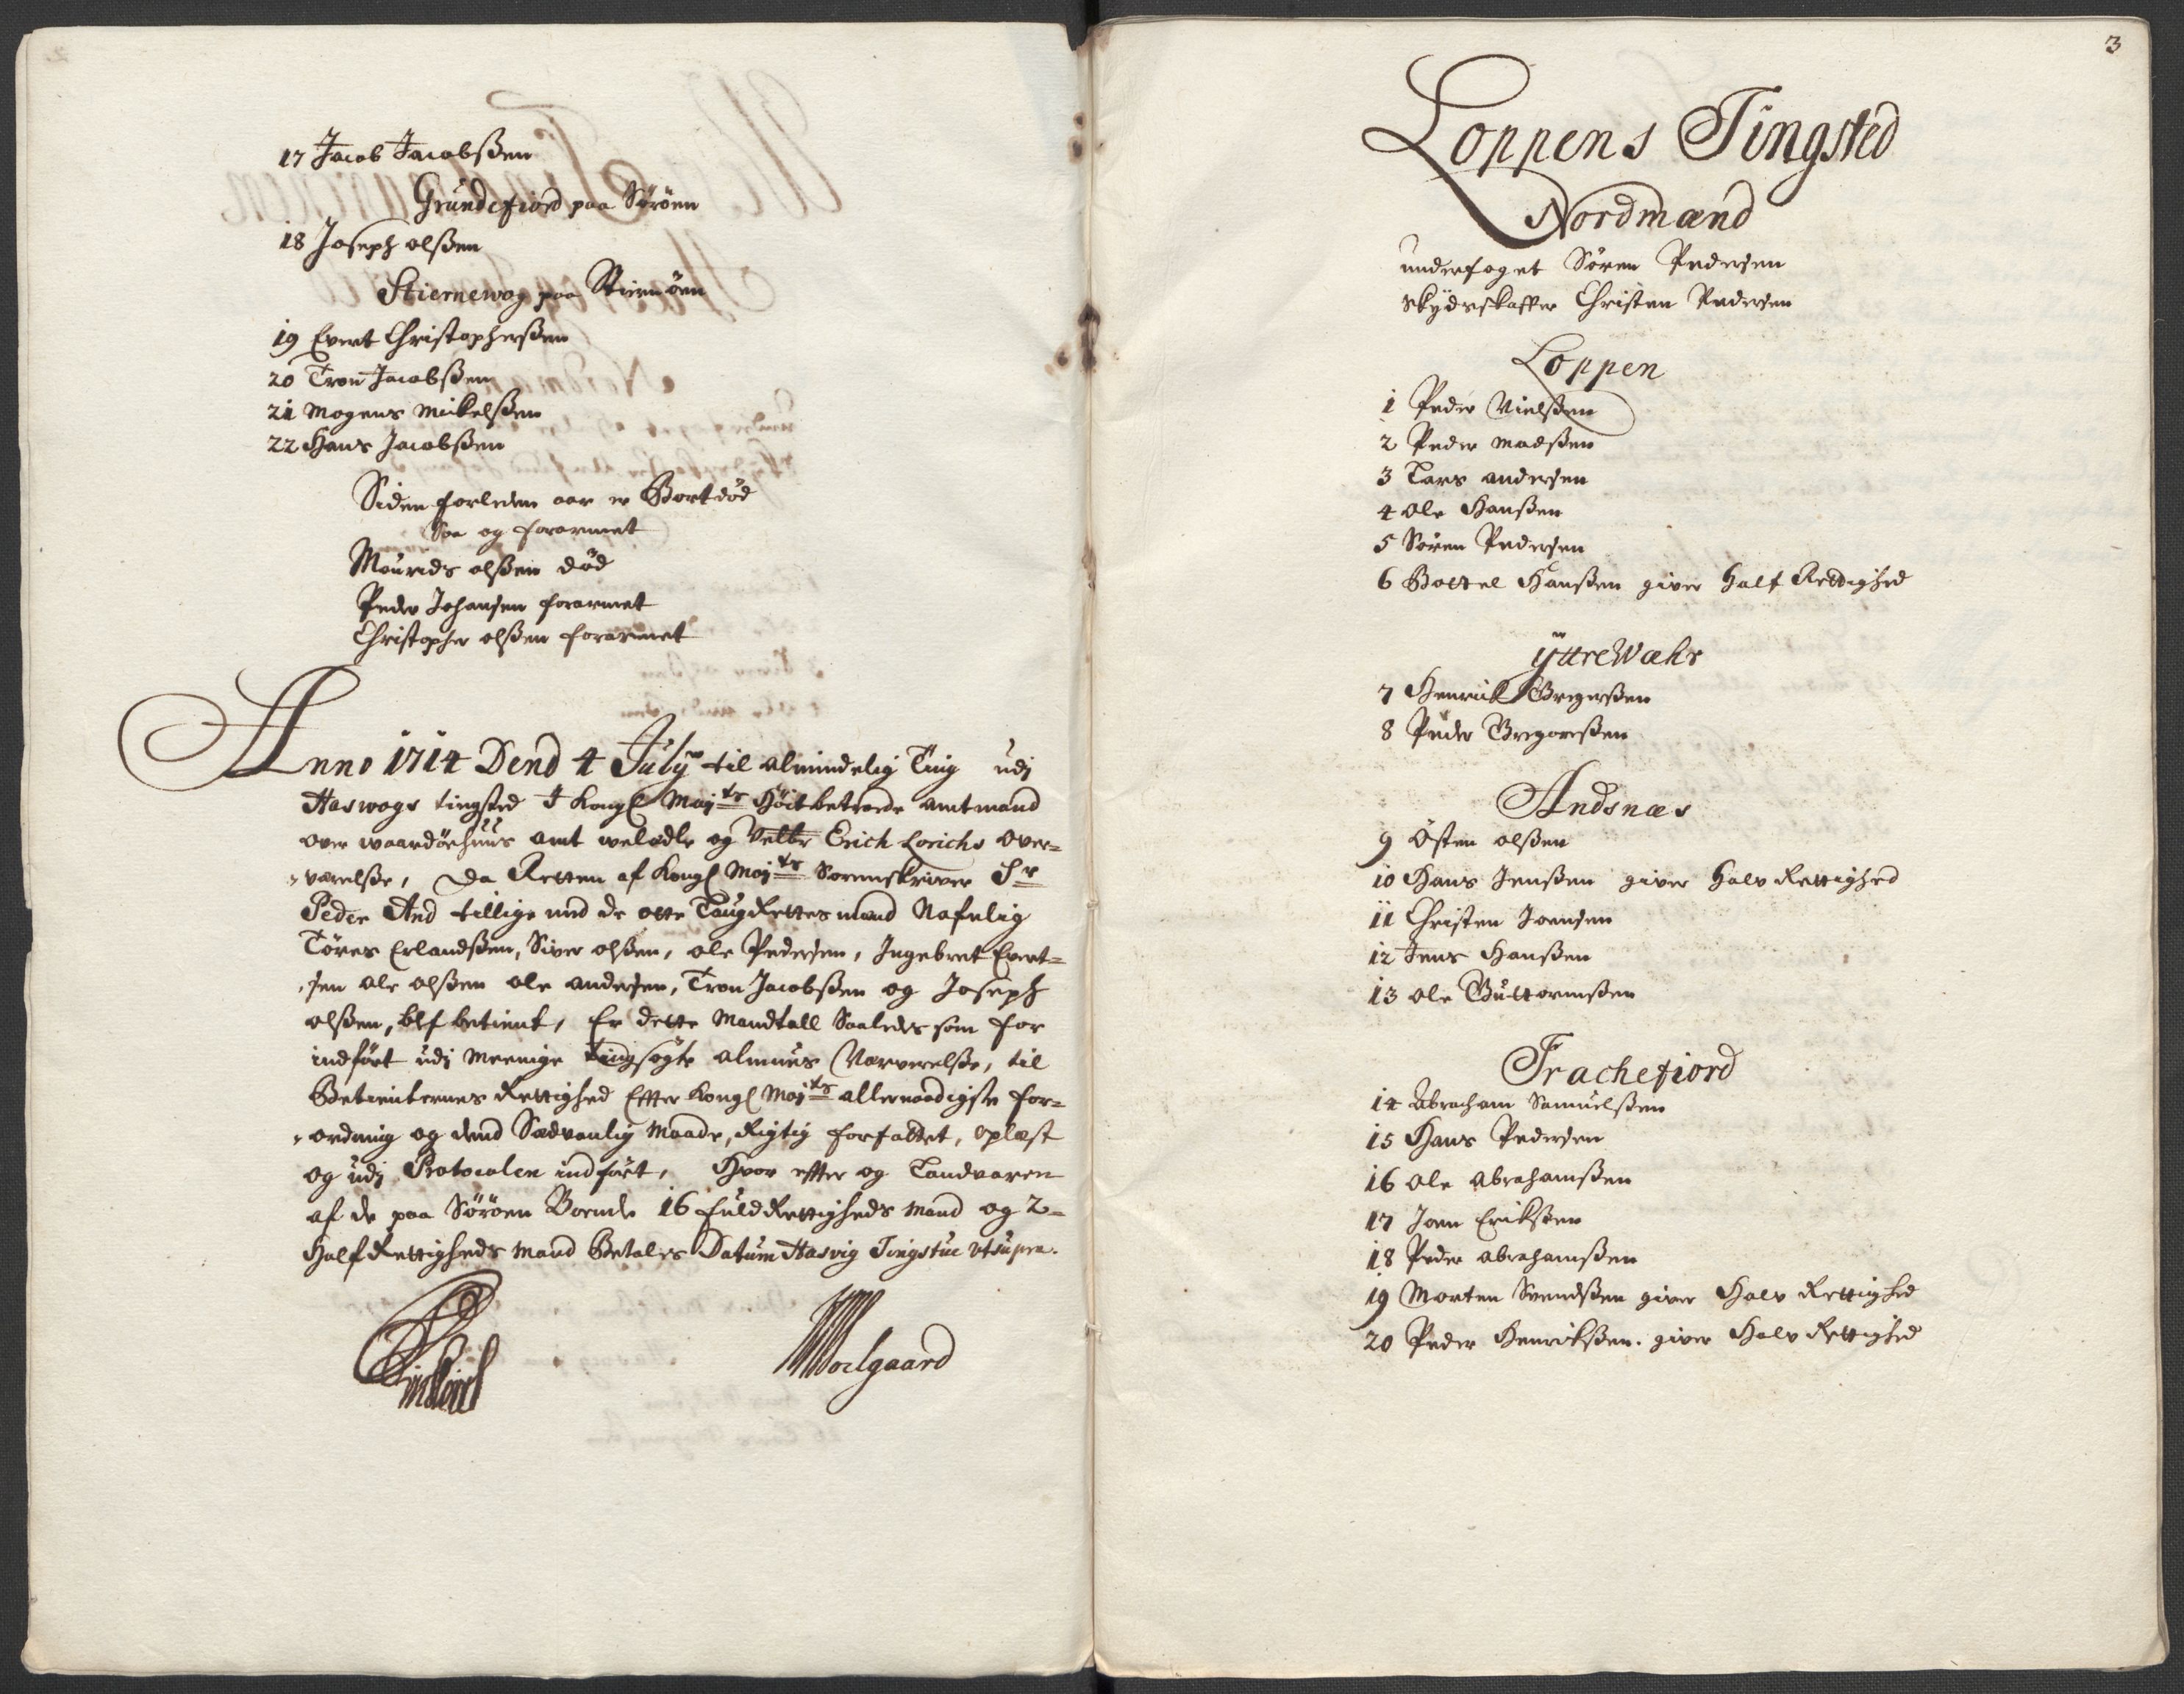 17 Jacob Jacobßen
Grundefiord paa Sørøen
18 Joseph olßen
Stiernewog paa Stiernöen
19 Evert Christopherßen
20 Tron Jacobßen
21 Mogens Mickelßen
22 Hans Jacobßen
Siden forleden aar er Bortdöd
Saa og forarmet
Mourids olßen död
Peder Johansen forarmet
Christopher olßen forarmet
Anno 1714 Dend 4 July til almindelig Ting udj
Haswogs tingsted I Kongl Maj:ts Höitbetroede Amtmand
over waardöehuus Amt welædle og Velbr Erich Lorichs Over=
=værelße, Da Retten af Kongl Maj:ts Sorenskriver Sr
Peder And tillige med de otte Laugrettesmænd Nafnlig
Töres Erlandßen, Siver olßen, ole Pedersen, Ingebret Evert=
=sen ole olßen ole andersen, Tron Jacobßen og Joseph
olßen, blef betient, Er dette Mandtall Saaledes som for
indfört udj Meenige Tingsögte almues Nærverelße, til
Betienternes Rettighed Effter Kongl Maj:ts allernaadigste for=
=ordning og dend Sædvanlig Maade, Rigtig forfattet, oplæst
og udj Protocolen indfört, Hvor effter og Landvaren
af de paa Sörøen Boende 16 fuld Rettigheds Mænd og 2=
Half Rettigheds Mænd Betales Datum Hasvig Tingstue Ut supra.
Woelgaard
3
Loppens Tingsted
Nordmænd
underfoget Sören Pedersen
Skydsskaffer Christen Pedersen
Loppen
1 Peder Nielßen
2 Peder Madßen
3 Lars andersen
4 ole Hanßen
5 Sören Pedersen
6 Bottel Hanßen giver half Rettighed
ÿttreWæhs
7 Henrick Gregerßen
8 Peder Gregorißen
Andsnæs
9 Östen olßen
10 Hans Jenßen giver halv Rettighed
11 Christen Joensen
12 Jens Hanßen
13 ole Guttormßen
Frachefiord
14 Abraham Samuelßen
15 Hans Pedersen
16 ole Abrahamßen
17 Joen Erikßen
18 Peder abrahamßen
19 Morten Svendßen giver Halv Rettighed
20 Peder Henrikßen. giver Halv Rettighed